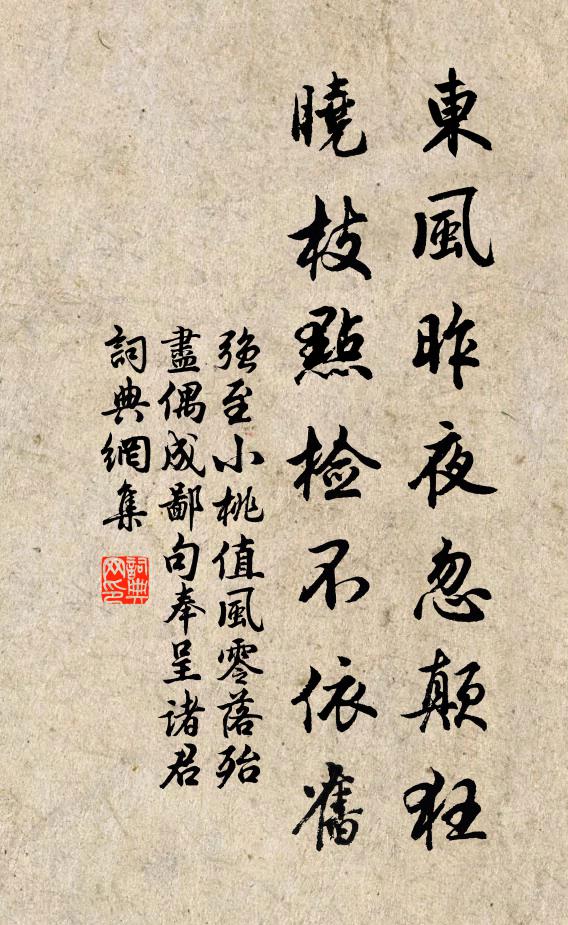 東風昨夜忽颠狂
曉枝點檢不依舊
强至小桃值風零落殆
盡偶成鄙句奉呈诸君
詞典網集
詞典网印